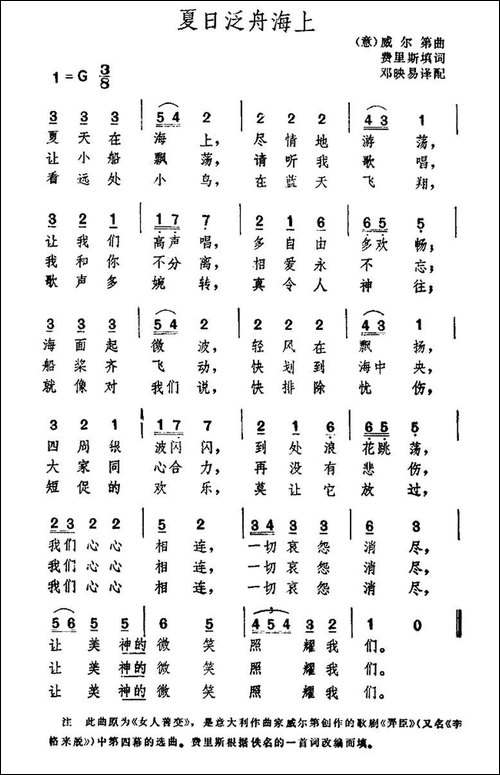 夏日泛舟海上
(意)威尔第曲
费里斯填词
邓映易译配
1=G 3/8
3 3 3 | 5 4 2 | 2 2 2 | 4 3 1 |
夏天在 海上, 尽情地 游荡,
让小船 飘荡, 请听我 歌唱,
看远处 小鸟, 在蓝天 飞翔,
3 2 1 | 1 7 7 | 2 1 6 | 6 5 5 |
让我们 高声唱, 多自由 多欢畅;
我和你 不分离, 相爱永 不忘;
歌声多 婉转, 真令人 神往;
3 3 3 | 5 4 2 | 2 2 2 | 4 3 1 |
海面起 微波, 轻风在 飘扬,
船桨齐 飞动, 快划到 海中央,
就像对 我们说, 快排除 忧伤,
3 2 1 | 1 7 7 | 2 1 6 | 6 5 5 |
四周银 波闪闪, 到处浪 花跳荡,
大家同 心合力, 再没有 悲伤,
短促的 欢乐, 莫让它 放过,
2 3 2 2 | 5 2 | 3 4 3 3 | 6 3 |
我们心心 相连, 一切哀怨 消尽,
我们心心 相连, 一切哀怨 消尽,
我们心心 相连, 一切哀怨 消尽,
5 6 5 5 | 6 5 | 4 5 4 2 | 1 0
让美神的 微笑 照耀我 们。
让美神的 微笑 照耀我 们。
让美神的 微笑 照耀我 们。
注 此曲原为《女人善变》,是意大利作曲家威尔第创作的歌剧《弄臣》(又名《李
格来脱》)中第四幕的选曲。费里斯根据佚名的一首词改编而填。